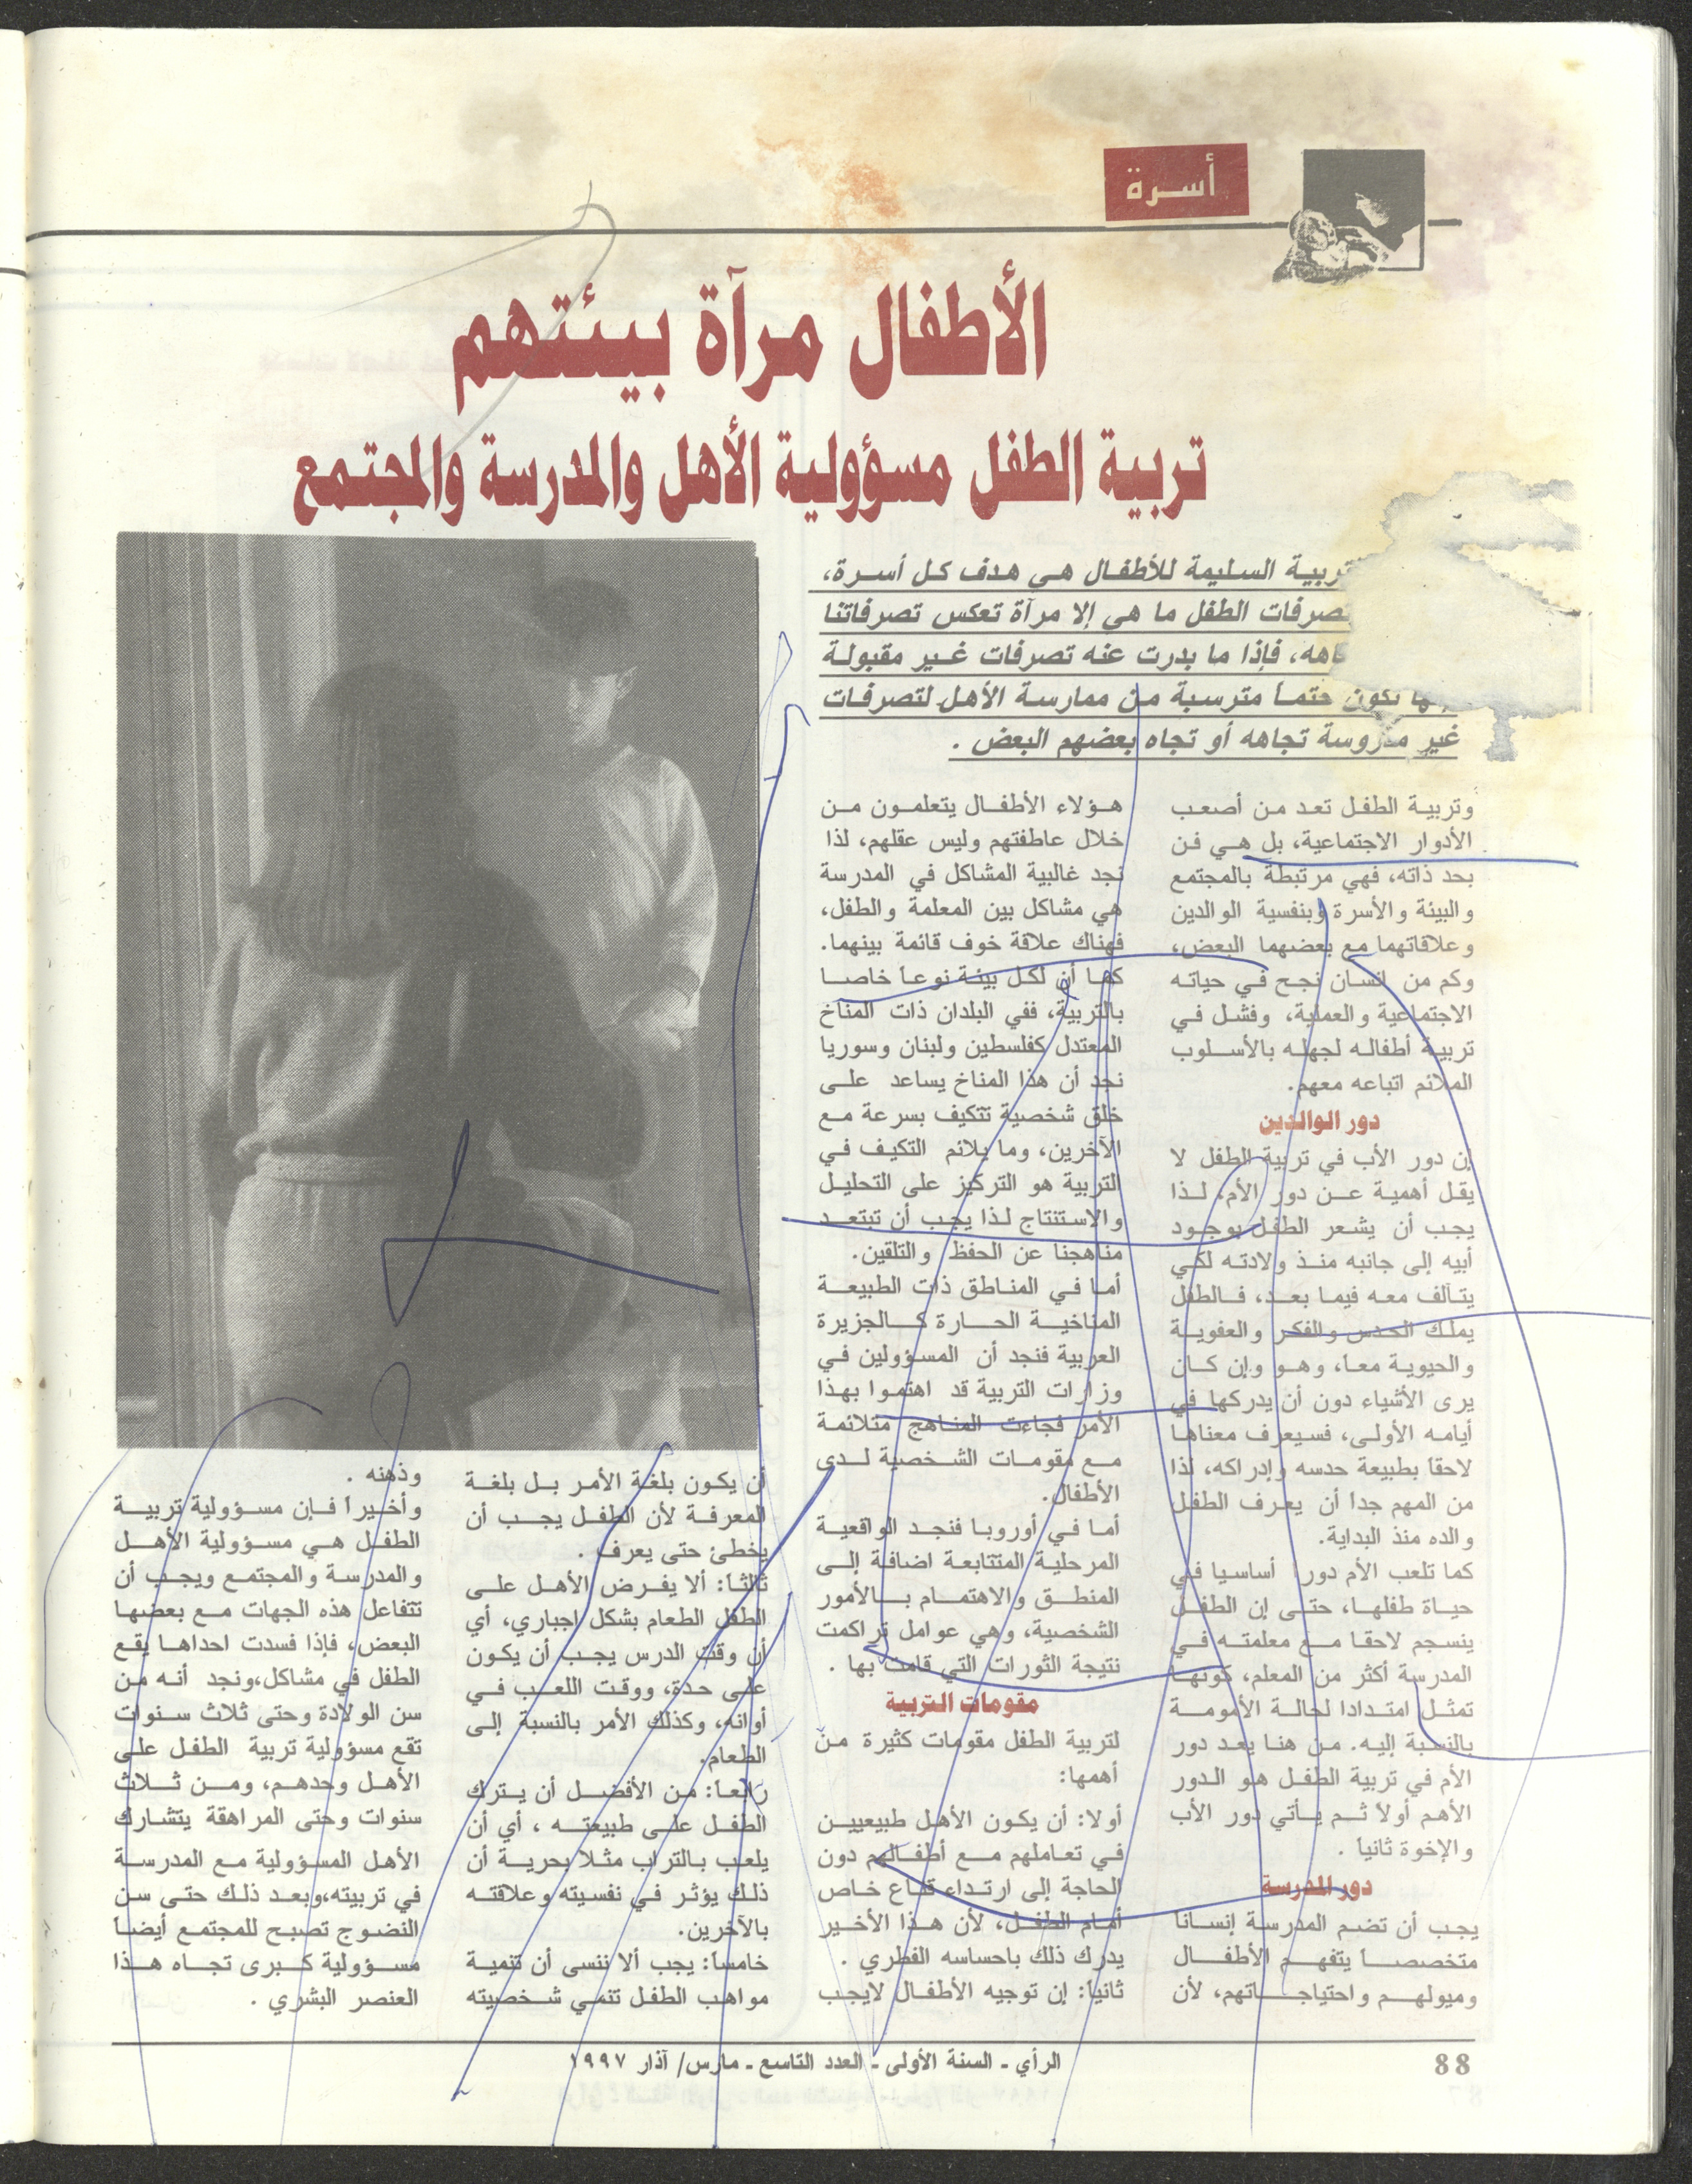 أسرة
الأطفال مرآة بيئتهم
تربية الطفل مسؤولية الأهل والمدرسة والمجتمع
السليمة للأطفال هي هدف كل أسرة،
الطفل ما هي إلا مرآة تعكس تصرفاتنا
فإذا ما بدرت عنه تصرفات غير مقبولة
تكون حتماً مترسبة من ممارسة الأهل لتصرفات
غير مدروسة تجاهه أو تجاه بعضهم البعض .
وتربية الطفل تعد من أصعب
الأدوار الاجتماعية، بل هي فن
بحد ذاته، فهي مرتبطة بالمجتمع
والبيئة والأسرة وبنفسية الوالدين
وعلاقاتهما مع بعضهما البعض،
وكم من انسان نجح في حياته
الاجتماعية والعملية، وفشل في
تربية أطفاله لجهله بالأسلوب
الملائم اتباعه معهم.
دور الوالدين
إن دور الأب في تربية الطفل لا
يقل أهمية عن دور الأم، لذا
يجب أن يشعر الطفل بوجود
أبيه إلى جانبه منذ ولادته لكي
يتآلف معه فيما بعد، فالطفل
يملك الحدس والفكر والعفوية
والحيوية معاً، وهو وإن كان
يرى الأشياء دون أن يدركها في
أيامه الأولى، فسيعرف معناها
لاحقاً بطبيعة حدسه وإدراكه، لذا
من المهم جداً أن يعرف الطفل
والده منذ البداية.
كما تلعب الأم دوراً أساسيا في
حياة طفلها، حتى إن الطفل
ينسجم لاحقا مع معلمته في
المدرسة أكثر من المعلم، كونها
تمثل امتدادا لحالة الأمومة
بالنسبة إليه. من هنا يعد دور
الأم في تربية الطفل هو الدور
الأهم أولاً ثم يأتي دور الأب
والإخوة ثانياً .
دور المدرسة
يجب أن تضم المدرسة إنساناً
متخصصاً يتفهم الأطفال
وميولهم واحتياجاتهم، لأن
هؤلاء الأطفال يتعلمون من
خلال عاطفتهم وليس عقلهم، لذا
نجد غالبية المشاكل في المدرسة
هي مشاكل بين المعلمة والطفل،
فهناك علاقة خوف قائمة بينهما.
كما أن لكل بيئة نوعاً خاصا
بالتربية، ففي البلدان ذات المناخ
المعتدل كفلسطين ولبنان وسوريا
نجد أن هذا المناخ يساعد على
خلق شخصية تتكيف بسرعة مع
الآخرين، وما يلائم التكيف في
التربية هو التركيز على التحليل
والاستنتاج لذا يجب أن تبتعد
مناهجنا عن الحفظ والتلقين.
أما في المناطق ذات الطبيعة
المناخية الحارة كالجزيرة
العربية فنجد أن المسؤولين في
وزارات التربية قد اهتموا بهذا
الأمر فجاءت المناهج متلائمة
مع مقومات الشخصية لدى
الأطفال.
أما في أوروبا فنجد الواقعية
المرحلية المتتابعة اضافة إلى
المنطق والاهتمام بالأمور
الشخصية، وهي عوامل تراكمت
نتيجة الثورات التي قامت بها .
مقومات التربية
لتربية الطفل مقومات كثيرة من
أهمها:
أولا: أن يكون الأهل طبيعيين
في تعاملهم مع أطفالهم دون
الحاجة إلى ارتداء قناع خاص
أمام الطفل، لأن هذا الأخير
يدرك ذلك باحساسه الفطري .
ثانياً: إن توجيه الأطفال لايجب
أن يكون بلغة الأمر بل بلغة
المعرفة لأن الطفل يجب أن
يخطئ حتى يعرف .
ثالثاً: ألا يفرض الأهل على
الطفل الطعام بشكل إجباري، أي
أن وقت الدرس يجب أن يكون
على حدة، ووقت اللعب في
أوانه، وكذلك الأمر بالنسبة إلى
الطعام.
رابعاً: من الأفضل أن يترك
الطفل على طبيعته ، أي أن
يلعب بالتراب مثلا بحرية أن
ذلك يؤثر في نفسيته وعلاقته
بالآخرين.
خامساً: يجب ألا ننسى أن تنمية
مواهب الطفل تنمي شخصيته
وذهنه .
وأخيراً فإن مسؤولية تربية
الطفل هي مسؤولية الأهل
والمدرسة والمجتمع ويجب أن
تتفاعل هذه الجهات مع بعضها
البعض، فإذا فسدت احداها يقع
الطفل في مشاكل،ونجد أنه من
سن الولادة وحتى ثلاث سنوات
تقع مسؤولية تربية الطفل على
الأهل وحدهم، ومن ثلاث
سنوات وحتى المراهقة يتشارك
الأهل المسؤولية مع المدرسة
في تربيته،وبعد ذلك حتى سن
النضوج تصبح للمجتمع أيضاً
مسؤولية كبرى تجاه هذا
العنصر البشري .
88
الرأي ـ السنة الأولى ـ العدد التاسع ـ مارس/ آذار ١٩٩٧